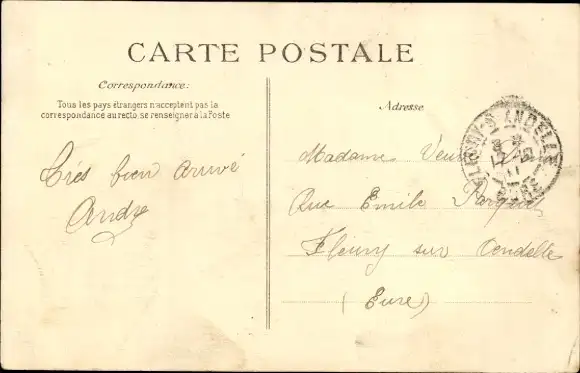 CARTE POSTALE
Correspondance:
Tous les pays étrangers n'acceptent pas la
correspondance au recto, se renseigner à la Poste
Très bien arrivé
André
Adresse
Madame Veuve
Rue Emile
Fleury sur Andelle
(Eure)
FLEURY-S-ANDELLE
EURE